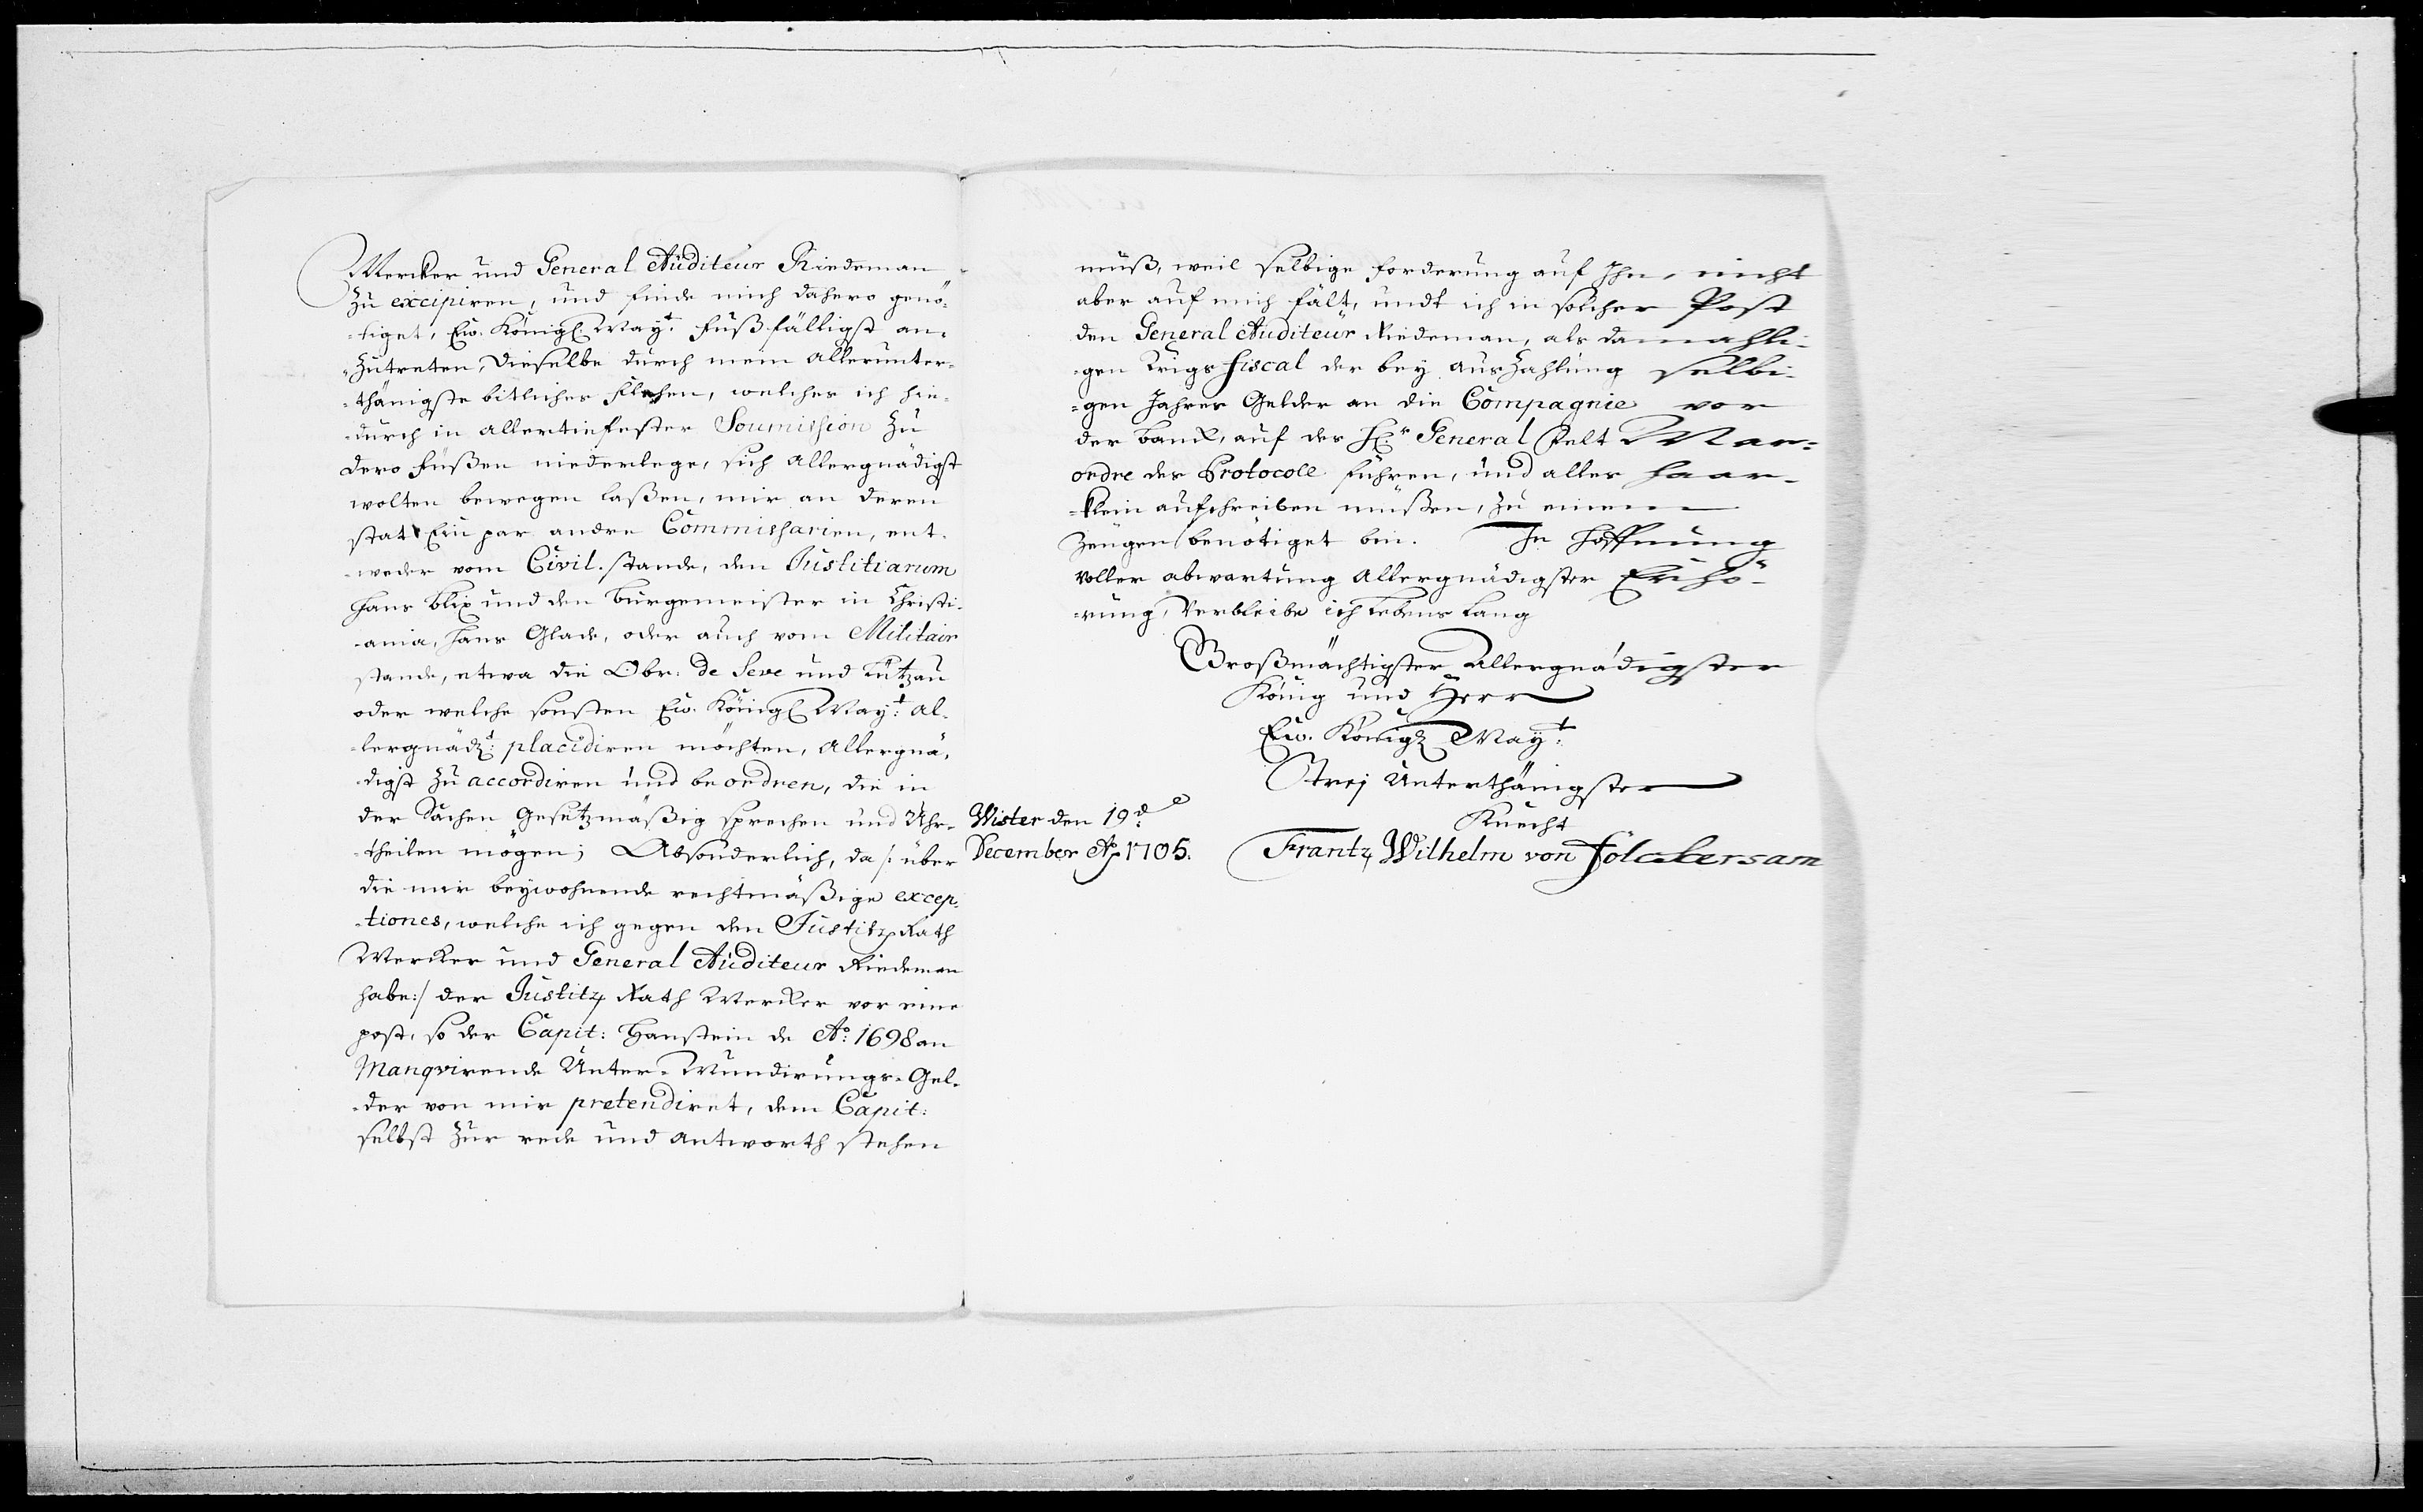 Wercker und General Auditeur Riedeman
Zu excipiren, und finde mich dahero genö-
-tiget, Ew. Königl. Mayt. fußfälligst an-
-zutreten, dieselbe durch mein allerunter-
-thänigste bitliches flehen, welches ich hie-
-durch in allertieffester Soumission Zu
dero füßen niederlege, sich allergnädigst
wolten bewegen laßen, mir an deren
stat Ein par andre Commissarien, ent-
-weder vom Civil-stande, den Justitiarum
Hans Blix und den Bürgemeister in Christi-
-ania, Hans Glade, oder auch vom Militair
stande, etwa die Obr: de Seve und Lützau
oder welche sonsten Ew. Königl Mayt: al-
-lergnädt: placidiren möchten, Allergnä-
-digst Zu accordiren und beordren, die in
der Sachen Gesetzmäßig sprechen und Uhr-
-theilen mögen; Absonderlich, da /: über
die mir beywohnende rechtmäßige excep-
-tiones, welche ich gegen den Justitz Rath
Wercker und General Auditeur Riedeman
habe :/ der Justitz Rath Wercker vor eine
post, so der Capit: Hanstein de Ao: 1698 an
Manqvirende Unter-Mundirungs-Gel-
-der von mir pretendiret, dem Capit:
selbst Zur rede und antworth stehen
muß, weil selbige forderung auf Ihn, nicht
aber auf mich fält, undt ich in solcher Post
den General Auditeur Riedeman, als damahli-
-gen Krigs fiscal der bey auszahlung selbi-
-gen Jahres Gelder an die Compagnie vor
der Banck, auf des Hr: General Felt Mar-
ordre das Protocoll führen, und alles haar-
-klein aufschreiben müßen, zu einem
Zeugen benötiget bin. In Hoffnung
voller abwartung Allergnädigster Erhö-
-rung, Verbleibe ich lebens lang
Großmächtigster Allergnädigster
König und Herr
Ew. Königl Mayt:
Treu Unterthänigster
Knecht
Wister den 19de
December Ao 1705.
Frantz Wilhelm von Fölckersam